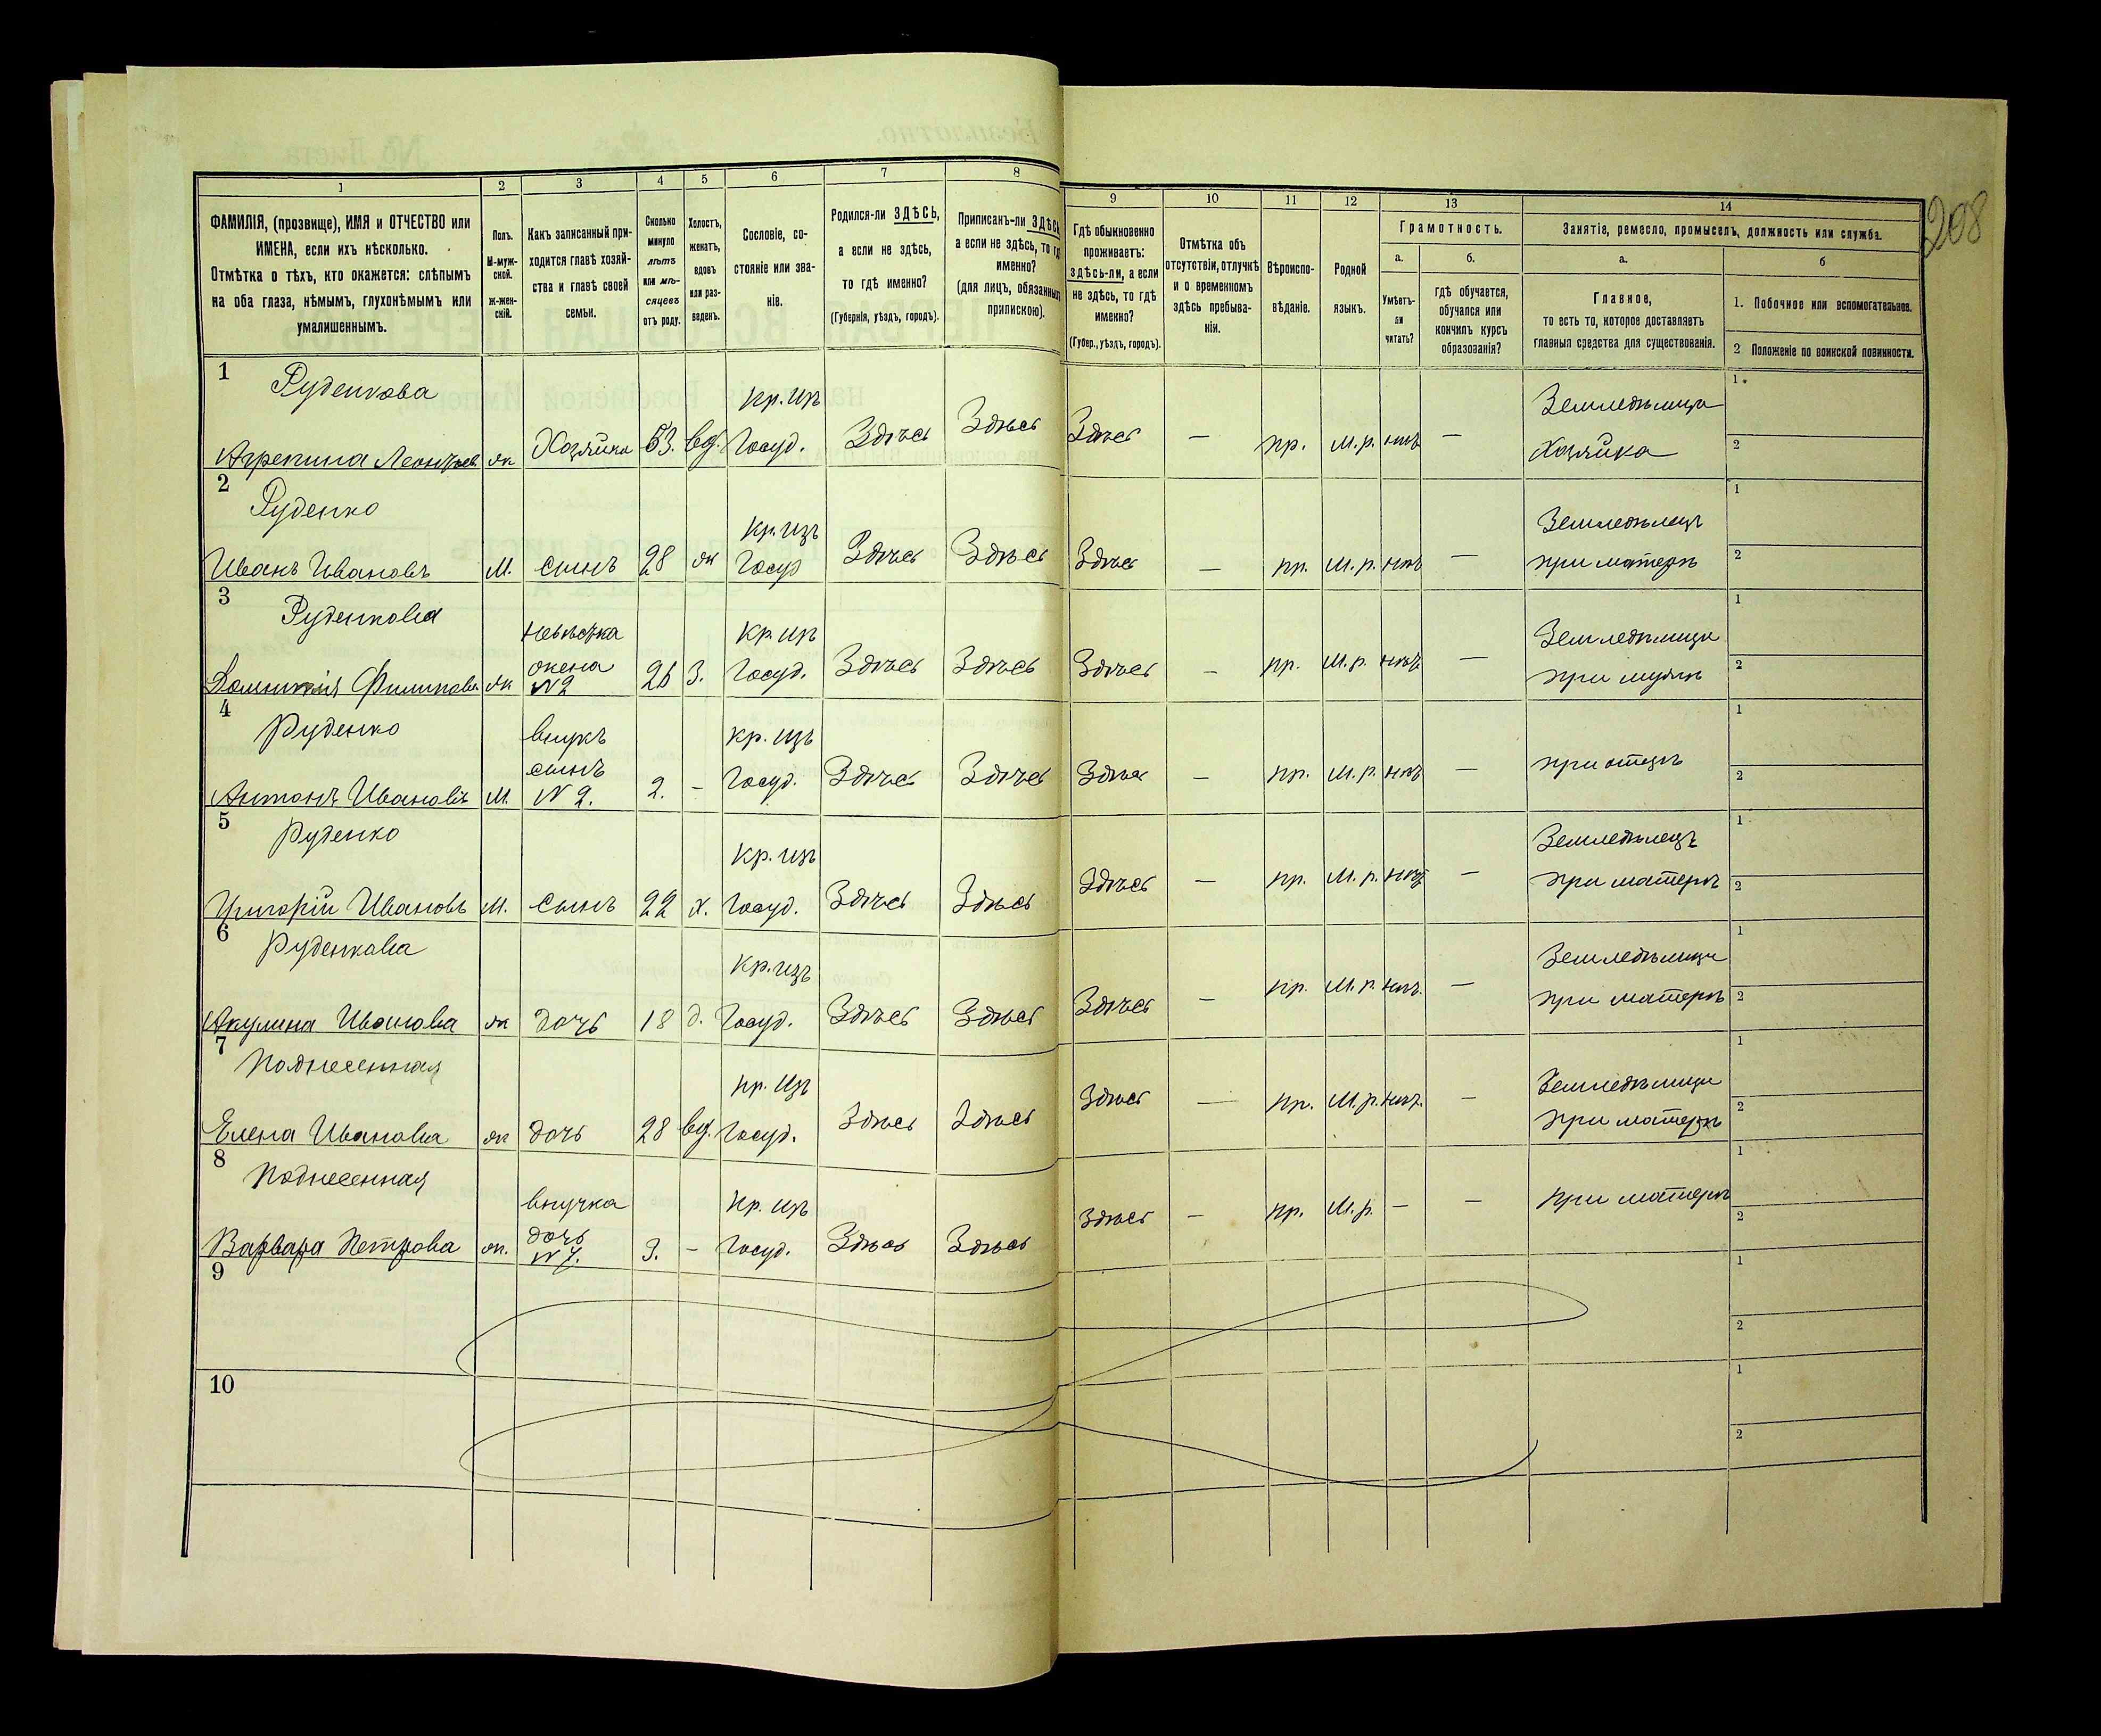 208
1 2 3 4 5 6 7 8 9 10 11 12 13 14
ФАМИЛІЯ, (прозвище), ИМЯ и ОТЧЕСТВО или
ИМЕНА, если ихъ нѣсколько.
Отмѣтка о тѣхъ, кто окажется: слѣпымъ
на оба глаза, нѣмымъ, глухонѣмымъ или
умалишеннымъ.
Полъ.
М-муж-
ской.
ж-жен-
скій.
Какъ записанный при-
ходится главѣ хозяй-
ства и главѣ своей
семьи.
Сколько
минуло
лѣтъ
или мѣ-
сяцевъ
отъ роду.
Холостъ,
женатъ,
вдовъ
или раз-
веденъ.
Сословіе, со-
стояніе или зва-
ніе.
Родился-ли ЗДѢСЬ,
а если не здѣсь,
то гдѣ именно?
(Губернія, уѣздъ, городъ).
Приписанъ-ли ЗДѢСЬ
а если не здѣсь, то гдѣ
именно?
(для лицъ, обязанныхъ
припискою).
Гдѣ обыкновенно
проживаетъ:
здѣсь-ли, а если
не здѣсь, то гдѣ
именно?
(Губер., уѣздъ, городъ).
Отмѣтка объ
отсутствіи, отлучкѣ
и о временномъ
здѣсь пребыва-
ніи.
Вѣроиспо-
вѣданіе.
Родной
языкъ.
Грамотность.
а.
Умѣетъ-
ли
читать?
б.
гдѣ обучается,
обучался или
кончилъ курсъ
образованія?
Занятіе, ремесло, промыселъ, должность или служба.
а.
Главное,
то есть то, которое доставляетъ
главныя средства для существованія.
б
1. Побочное или вспомогательное.
2 Положеніе по воинской повинности.
1 Руденкова Кр. изъ Земледѣлица 1
Агрепина Леонтьев. ж Хозяйка 53. вд. Госуд. Здѣсь Здѣсь Здѣсь — пр. М.р. нѣтъ — Хозяйка 2
2 Руденко Кр. изъ Земледѣлецъ 1
Иванъ Ивановъ М. сынъ 28 ж Госуд Здѣсь Здѣсь Здѣсь — пр. М.р. нѣтъ — при матери 2
3 Руденкова невѣстка Кр. изъ Земледѣлица 1
Филипова ж жена №2 26 З. Госуд. Здѣсь Здѣсь Здѣсь — пр. М.р. нѣтъ — при мужѣ 2
4 Руденко внукъ Кр. изъ 1
сынъ
Антонъ Ивановъ М. №2. 2. - Госуд. Здѣсь Здѣсь Здѣсь — пр. М.р. нѣтъ — при отцѣ 2
5 Руденко Кр. изъ Земледѣлецъ 1
Григорій Ивановъ М. сынъ 22 х. Госуд. Здѣсь Здѣсь Здѣсь — пр. М.р. нѣтъ — при матерѣ 2
6 Руденкова Кр. изъ Земледѣлица 1
Акулина Иванова ж дочь 18 д. Госуд. Здѣсь Здѣсь Здѣсь — пр. М.р. нѣтъ. — при матерѣ 2
7 Поднесенная Кр. изъ Земледѣлица 1
Елена Иванова ж дочь 28 вд. Госуд. Здѣсь Здѣсь Здѣсь — пр. М.р. нѣтъ. — при матерѣ 2
8 Поднесенная внучка Кр. изъ 1
дочь
Варвара Петрова ж. №7. 3. - Госуд. Здѣсь Здѣсь Здѣсь — пр. М.р. — — при матерѣ 2
9 1
2
10 1
2